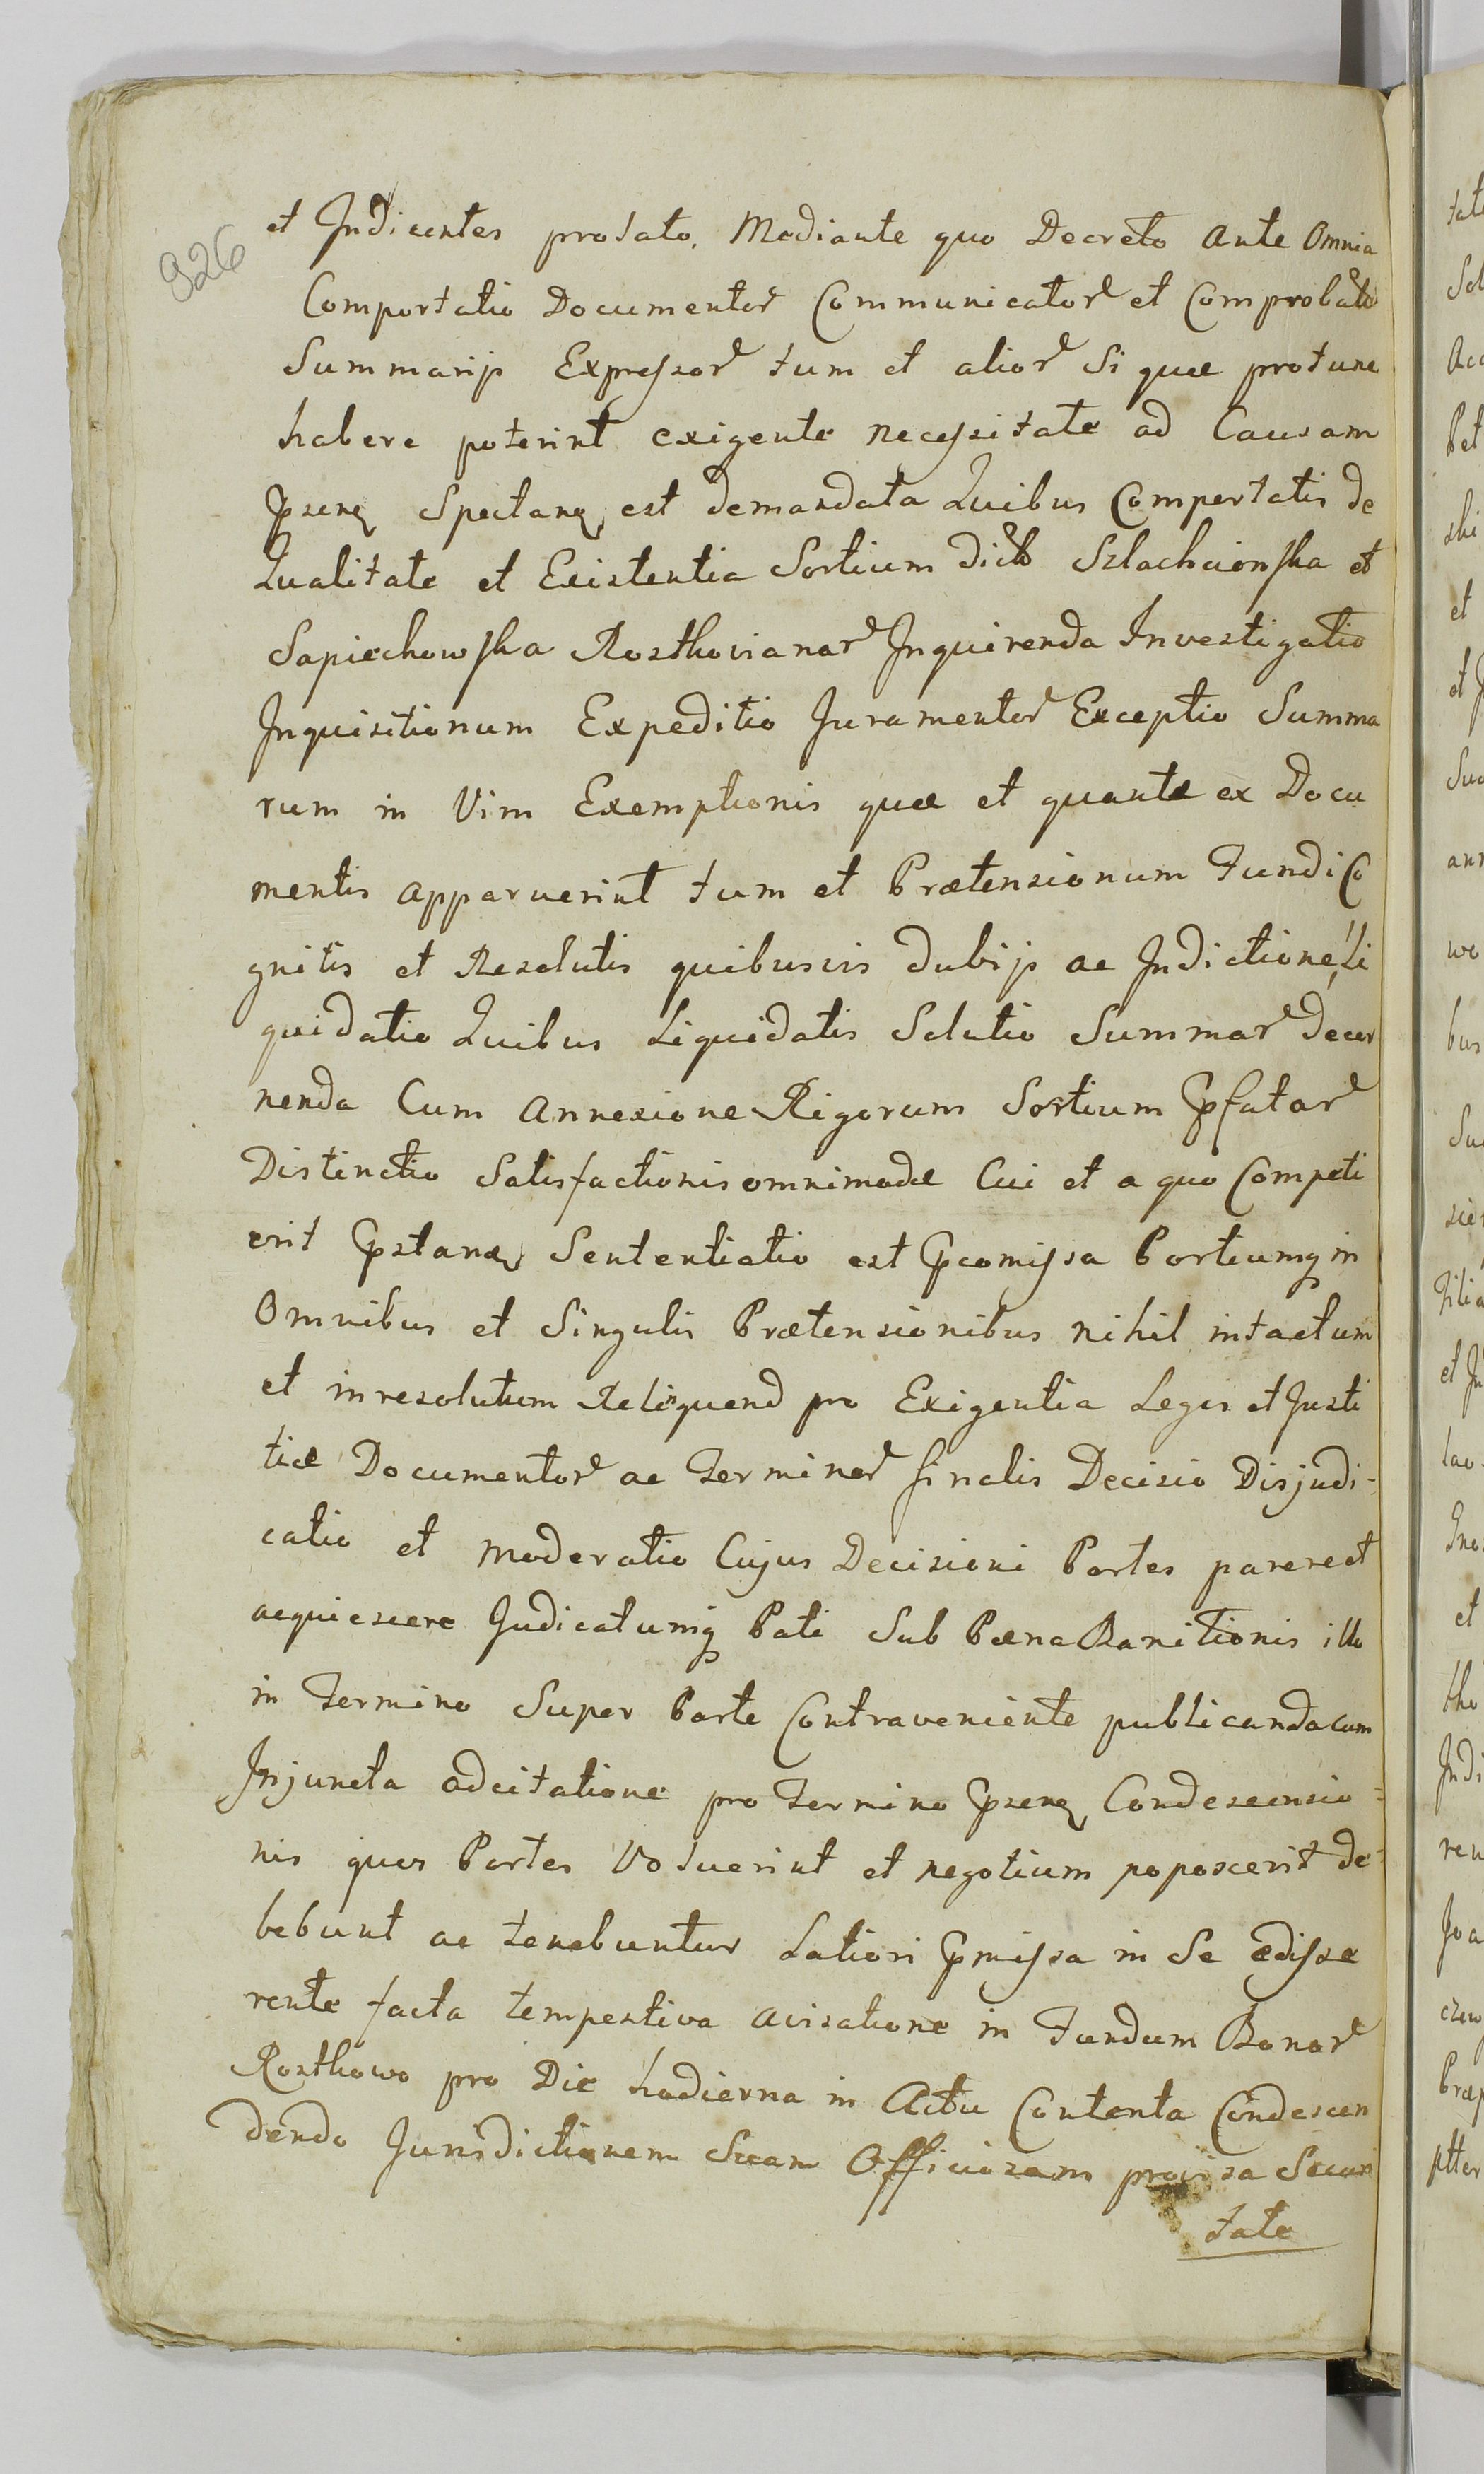 926
et Indicentes prolato. Mediante quo Decreto ante Omnia
Comportatio Documentor Communicator et Comprobatio
Summarijs Expressor tum et alior Si quæ protunc
habere poterint exigente necessitate ad Causam
Pnsenq Spectanq est demandata Quibus Comportatis de
Qualitate et Existentia Sortium dictis Szlachcionska et
Sapiechowska Rosthovianar Inquirenda Investigatio
Inquisitionum Expeditio Juramentor Exceptio Summa
rum in Vim Exemptionis quæ et quantæ ex Docu
mentis apparuerint tum et Prætensionum Fundi Co
gnitis et Resolutis quibusvis dubijs ac Indictione Li
quidatio Quibus Liquidatis Solutio Summar decer
nenda Cum Annexione Rigorum Sortium Pfatar
Distinctio Satisfactionis omnimodæ Cui et a quo Competi
erit Pstanq Sententiatio est Pcomissa Partiumq in
Omnibus et Singulis Prætensionibus nihil intactum
et inresolutum Relinquend pro Exigentia Legis et Justi
tiæ Documentor ac Terminor finalis Decisio Disjudi-
catio et moderatio Cujus Decisioni Partes parere et
acquiescere Judicatumq Pati Sub Pæna Banitionis illo
in Termino Super Parte Contraveniente publicanda cum
Injuncta adcitatione pro Termino Psenq Condescensio=
nis quos Partes Voluerint et negotium poposcerit de-
bebunt ac tenebuntur Latiori Pmissa in Se edisse
rente facta tempestiva avisatione in Fundum Bonor
Rosthowo pro Die hodierna in Actu Contenta Condescen
dendo Jurisdictionem Suam Officiosam provisa Securi
tate